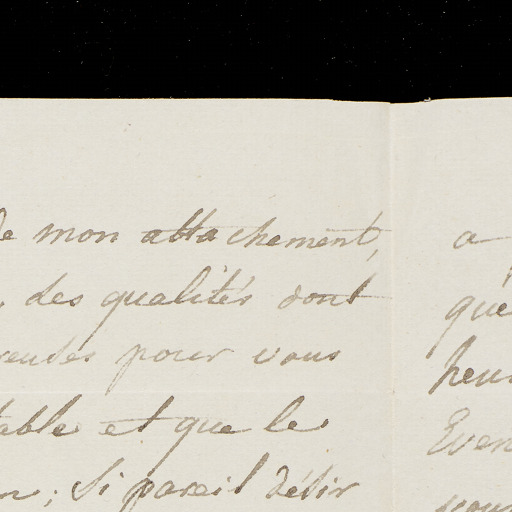 de mon attachement,
des qualités dont
pour vous
table et que le
; Si pareil désir
a
que
heu
Even